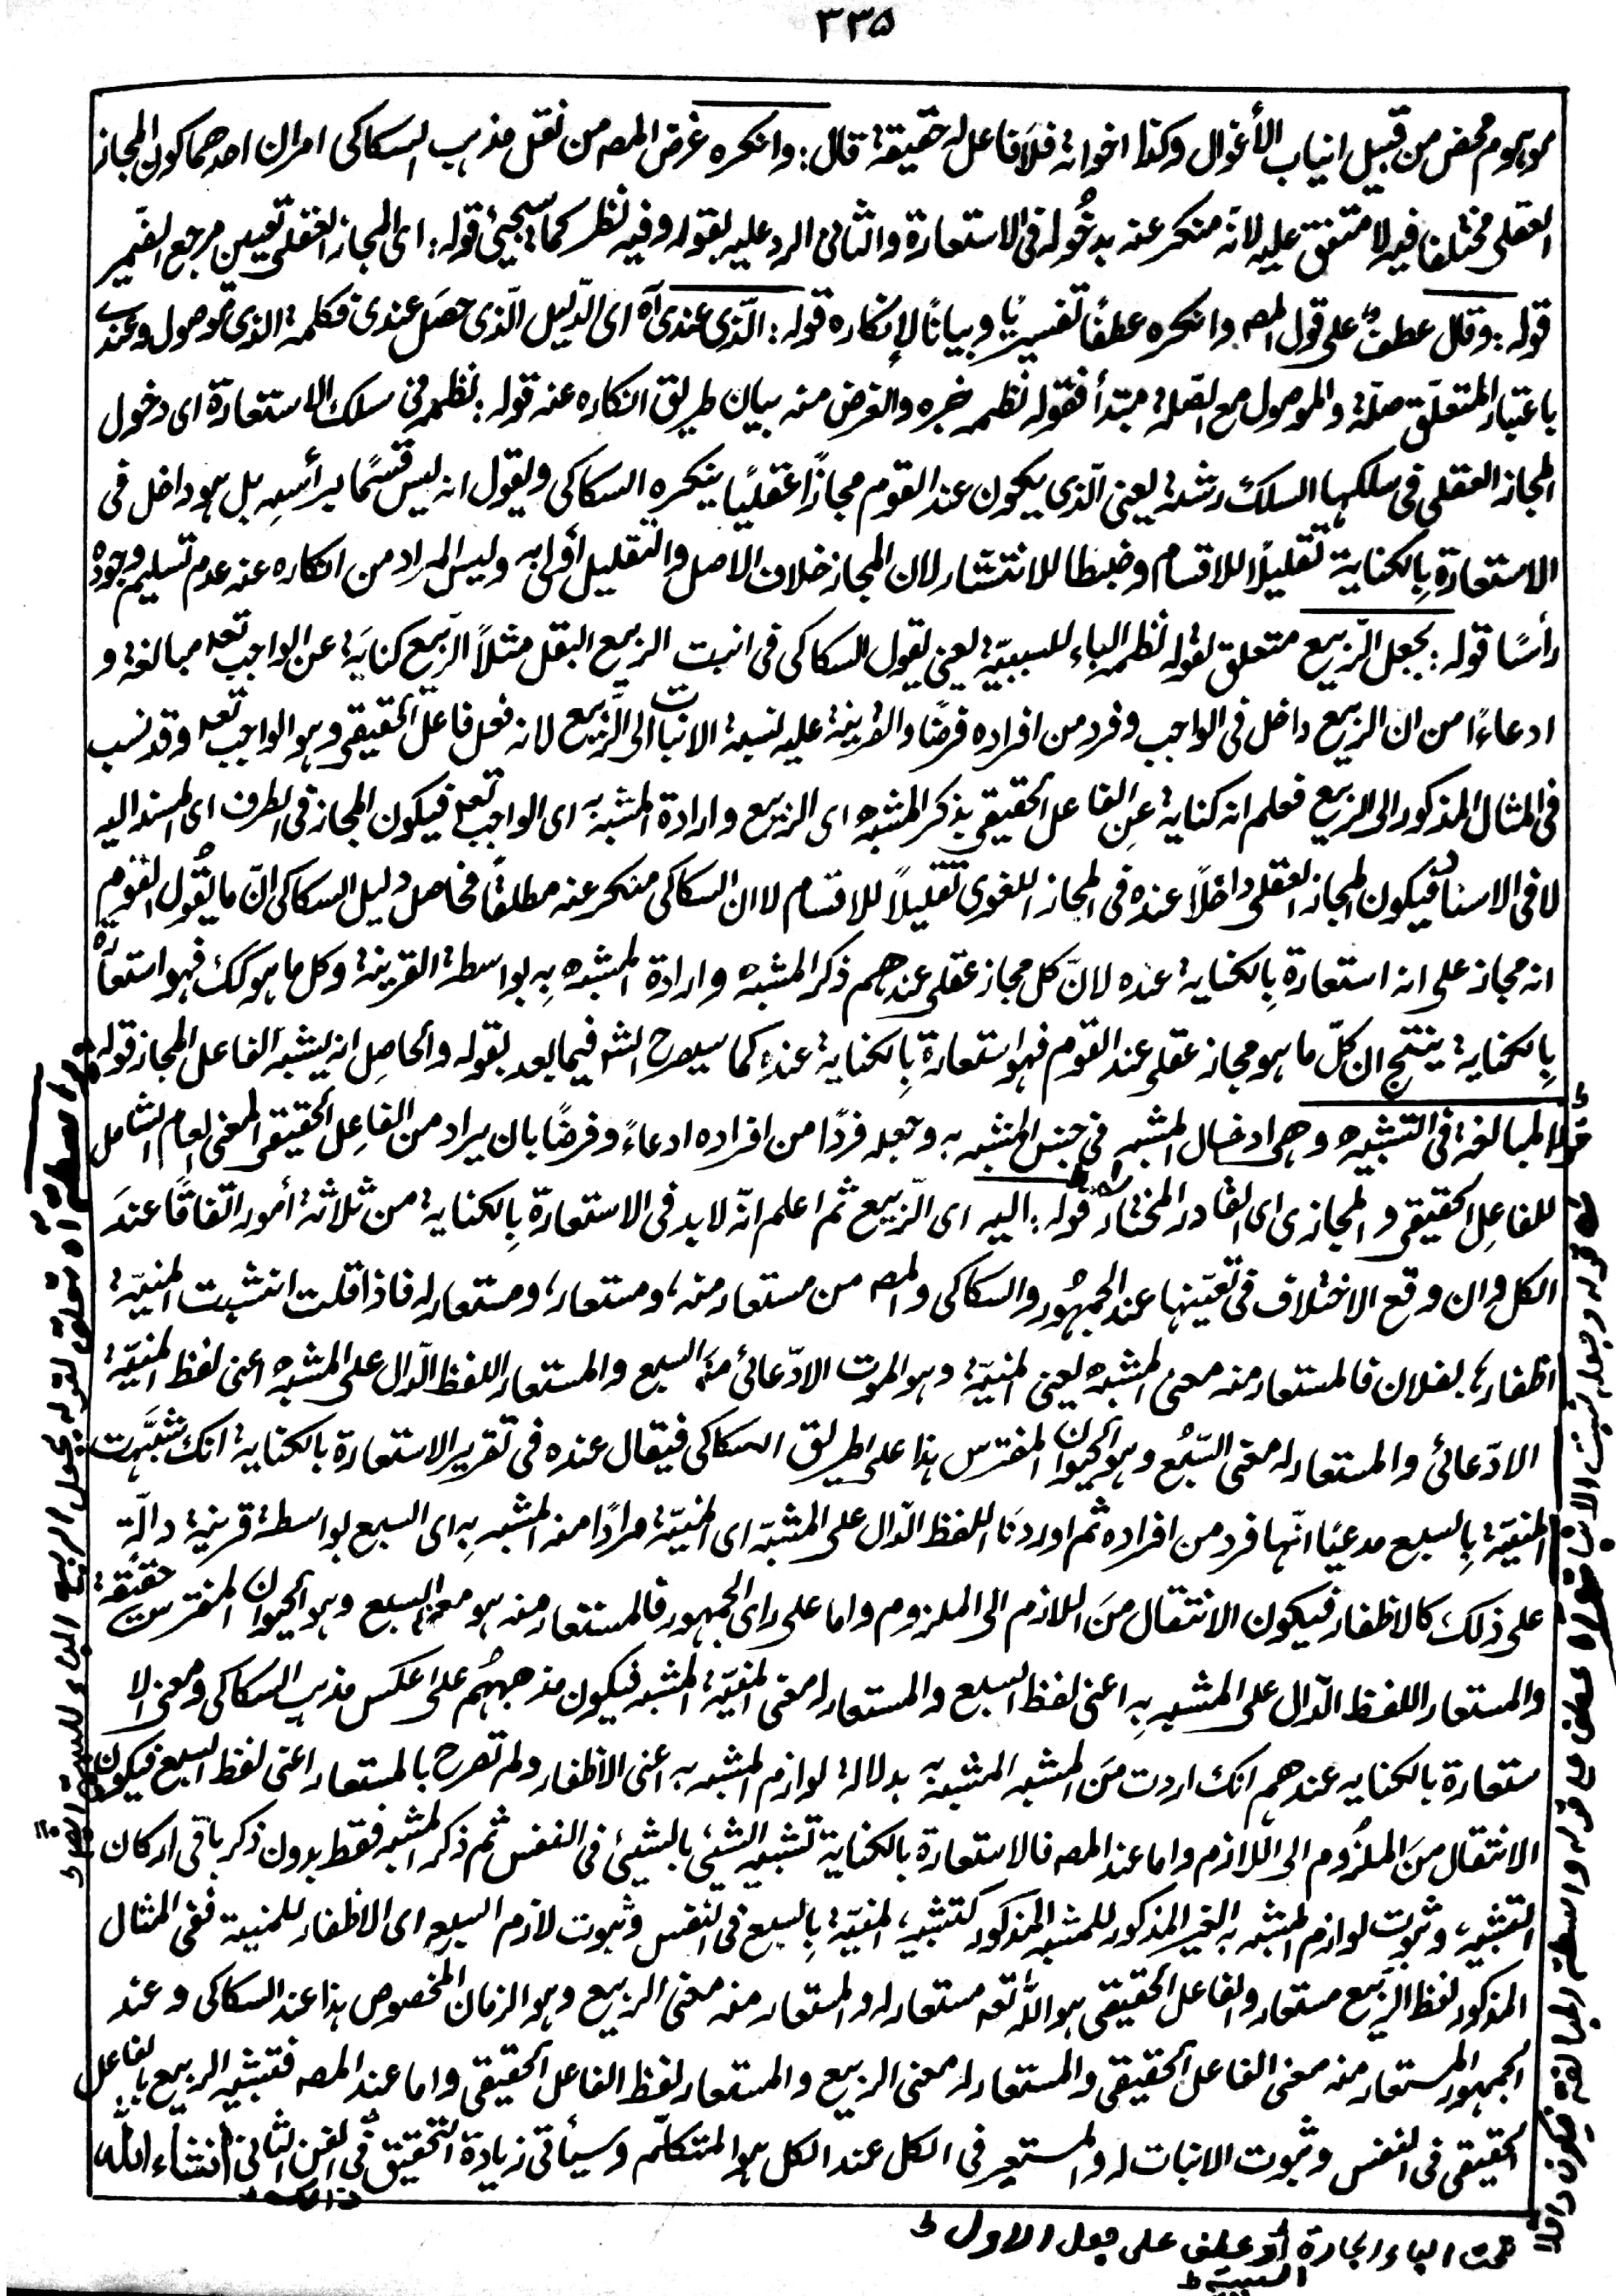 ٣٣٥
موہوم محض من قبیل انیاب الأغوال وکذا اخواته فلا فاعل له حقیقة قال: وانکره غرض المصـ من نقل مذہب السکاکی امران احدهما کون المجاز
العقلی مختلفا فیه لا متفق علیه لانّه منکر عنه بدخُوله فی الاستعارة والثانی الرد علیه بقوله وفیه نظر کما سیجیٔ قوله: ای المجاز العقلی تعیین مرجع الضمیر
قوله: وقال عطفٌ علی قول المصـ وانکره عطفًا تفسیریًا وبیانًا لإنکاره قوله: الّذی عندی آه ای الدّلیل الّذی حصَل عندی فکلمة الذی موصول وعندی
باعتبار المتعلّق صلة والموصول مع الصّلة مبتدأ فقوله نظمه خبره والغرض منه بیان طریق انکاره عنه قوله: نظمه فی سلك الاستعارة ای دخول
المجاز العقلی فی سلکہا السلك رشته یعنی الّذی یکون عند القوم مجازًا عقلیًا ینکره السکاکی ویقول انه لیس قسمًا برأسه بل ہو داخل فی
الاستعارة بِالکنایة تقلیلًا للاقسام وضبطا للانتشار لان المجاز خلاف الاصل والتقلیل أولٰی به ولیس المراد من انکاره عنه عدم تسلیم وجوده
رأسًا قوله: بجعل الرّبیع متعلق بقوله نظمه الباء للسببیّة یعنی یقول السکاکی فی انبت الربیع البقل مثلًا الرّبیع کنایَة عن الواجب تعہ مبالغة و
ادعاءًا من ان الربیع داخل فی الواجب وفرد من افراده فرضًا والقرینة علیه نسبة الانبات الی الرّبیع لانه فعل فاعل الحقیقی وہو الواجب تعہ وقد نسب
فی المثال المذکور الی الربیع فعلم انه کنایة عن الفاعل الحقیقی بذکر المشبه ای الربیع وارادة المشبه به ای الواجب تعہ فیکون المجاز فی الطرف ای المسند الیه
لا فی الاسناد فیکون المجاز العقلی داخلًا عنده فی المجاز اللغوی تقلیلًا للاقسام لا ان السکاکی منکر عنه مطلقًا فحاصل دلیل السکاکی انّ ما یقُول القوم
انه مجاز علی انه استعارة بِالکنایة عنده لانّ کل مجاز عقلی عندهم ذکر المشبه وارادة المشبه بِه بواسطة القرینة وکل ما ہو کك فہو استعارة
بِالکنایة ینتج ان کلّ ما ہو مجاز عقلی عند القوم فہو استعارة بِالکنایة عندہِ کما سیصرح الشـ فیما بعد بقوله والحاصِل انه یشبه الفاعل المجاز قوله
المبالغة فی التشبیه وهی ادخال المشبه فی جنس المشبه به وجعله فردًا من افراده ادعاءً وفرضًا بان یراد من الفاعِل الحقیقی المعنی العام الشامل
للفاعِل الحقیقی والمجازی ای القادر المختار قوله: الیه ای الرّبیع ثم اعلم انّه لا بد فی الاستعارة بِالکنایة من ثلاثة أمور اتفاقًا عندَ
الکل وان وقع الاختلاف فی تعیّنها عند الجمہُور والسکاکی والمصـ من مستعار منه، ومستعار، ومستعار له فاذا قلت انشبت المنیّة
اظفارہا بفلان فالمستعار منه معنی المشبه یعنی المنیّة وہو الموت الادّعائی منه السبع والمستعار اللفظ الدّال علی المشبه اعنی لفظ المنیّة
الادّعائی والمستعار له معنی السّبُع وہو الحیوان المفترس ہذا علی طریق السکاکی فیقال عنده فی تقریر الاستعارة بالکنایة انك شبَّہت
المنیّة بِالسبع مدعیًا انّہا فرد من افراده ثم اوردنَا اللفظ الدّال علی المشبّه ای المنیّة مرادًا منه المشبه بِه ای السبع بواسطة قرینة دالّة
علی ذلك کالاظفار فیکون الانتقال مِنَ اللازم الی الملزوم واما علی رای الجمہور فالمستعار منه ہو معنی السبع وہو الحیوان المفترس حقیقة
والمستعار اللفظ الدّال علی المشبه بِه اعنی لفظ السبع والمستعار له معنی المنیّة المشبه فیکون مذهبہُم علی عکس مذہب السکاکی ومعنی الا
ستعارة بالکنایه عندهم انك اردت مِنَ المشبه المشبه به بدلالة لوازم المشبه به اعنی الاظفار ولم تصرح بالمستعار اعنی لفظ السبع فیکون
الانتقال مِنَ الملزُوم الی اللّازم واما عند المصـ فالاستعارة بالکنایة تشبیه الشیٔ بالشیٔ فی النفس ثم ذکر المشبه فقط بدون ذکر باقی ارکان
التشبیه، وثبوت لوازم المشبه به الغیر المذکور للمشبه المذکور کتشبیه المنیّة بِالسبع فی النفس وثبوت لازم السبع ای الاظفار للمنیة ففی المثال
المذکور لفظ الرّبیع مستعار والفاعل الحقیقی ہو اللّٰه تعہ مستعار له والمستعار منه معنی الربیع وہو الزمان المخصوص ہذا عند السکاکی وعند
الجمہور المستعار منه معنی الفاعل الحقیقی والمستعار له معنی الربیع والمستعار لفظ الفاعل الحقیقی واما عند المصـ فتشبیه الربیع بالفاعل
الحقیقی فی النفس وثبوت الانبات له والمستعیر فی الکل عند الکل ہو المتکلّم وسیأتی زیادة التحقیق فی الفن الثانی انشاء اللّٰه
تحت الباء الجارة أو عطف علی جعل الاول
السببیة
بواسطة آه متعلق لقوله بجعل الربیع الباء للسببیة
قوله وجعل نسبة الانبات آه عطف علی قوله بواسطة المبالغة فیکون داخلا